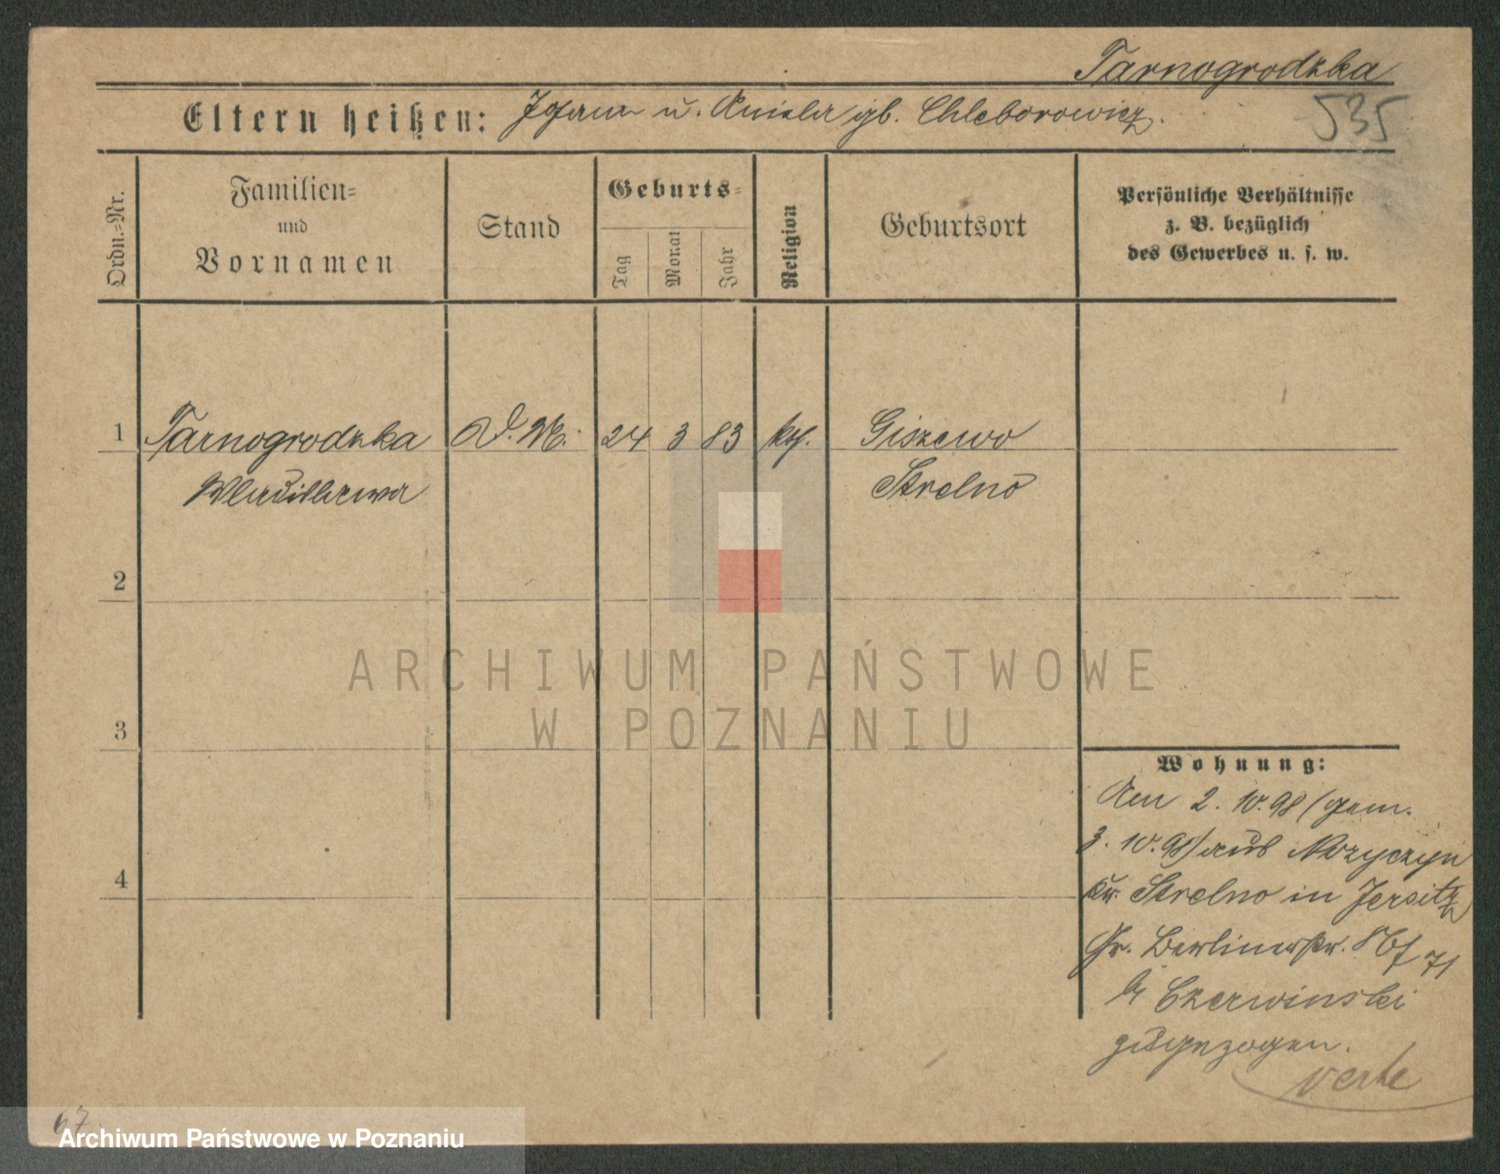 Tarnogrodzka
Eltern heißen: Johann u. Aniela gb. Chleborowicz.
535
Ordn.-Nr.
Familien-
und
Vornamen
Stand
Geburts-
Tag
Monat
Jahr
Religion
Geburtsort
Persönliche Verhältnisse
z. B. bezüglich
des Gewerbes u. s. w.
1 Tarnogrodzka D. M. 24 3 83 kth. Giszewo
Wladislawa Strelno
2
ARCHIWUM PAŃSTWOWE
W POZNANIU
3
Wohnung:
Am 2. 10. 98 (gem.
3. 10. 98) aus
4
Kr. Strelno in Jersitz
Gr. Berlinerstr. 71
b Czerwinski
zugezogen.
67
Archiwum Państwowe w Poznaniu